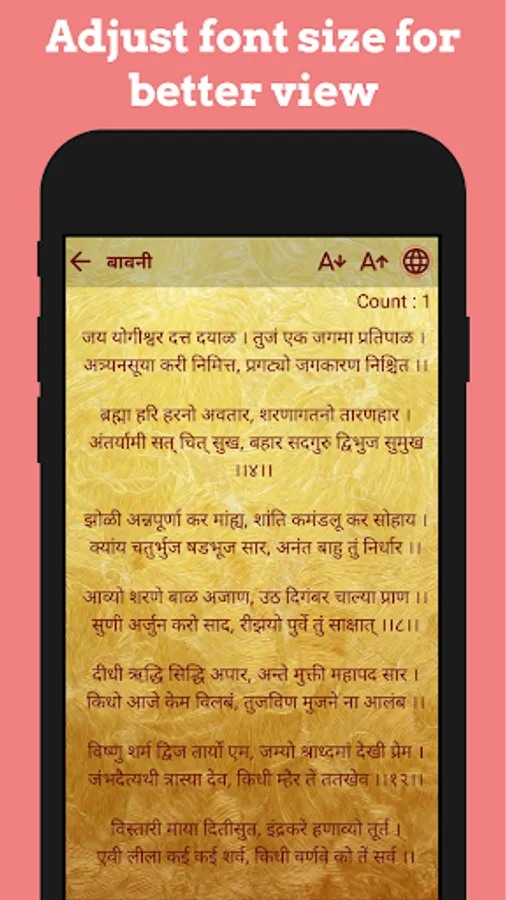 Adjust font size for
better view
बावनी
A A
Count : 1
जय योगीश्वर दत्त दयाळ । तुजं एक जगमा प्रतिपाळ ।
अत्र्यनसूया करी निमित्त, प्रगट्यो जगकारण निश्चित ।।
ब्रह्मा हरि हरनो अवतार, शरणागतनो तारणहार ।
अंतर्यामी सत् चित् सुख, बहार सदगुरु द्विभुज सुमुख
।।४।।
झोळी अन्नपूर्णा कर मांह्य, शांति कमंडलू कर सोहाय ।
क्यांय चतुर्भुज षडभूज सार, अनंत बाहु तुं निर्धार ।।
आव्यो शरणे बाळ अजाण, उठ दिगंबर चाल्या प्राण ।।
सुणी अर्जुन करो साद, रीझयो पुर्वे तुं साक्षात् ।।८।।
दीधी ऋद्धि सिद्धि अपार, अन्ते मुक्ती महापद सार ।
किधो आजे केम विलबं, तुजविण मुजने ना आलंब ।।
विष्णु शर्म द्विज तार्यो एम, जम्यो श्राध्दमां देखी प्रेम ।
जंभदैत्यथी त्रास्या देव, किधी म्हैर तें ततखेव ।।१२।।
विस्तारी माया दितीसुत, इंद्रकरे हणाव्यो तूर्त ।
एवी लीला कई कई शर्व, किधी वर्णवे को तें सर्व ।।